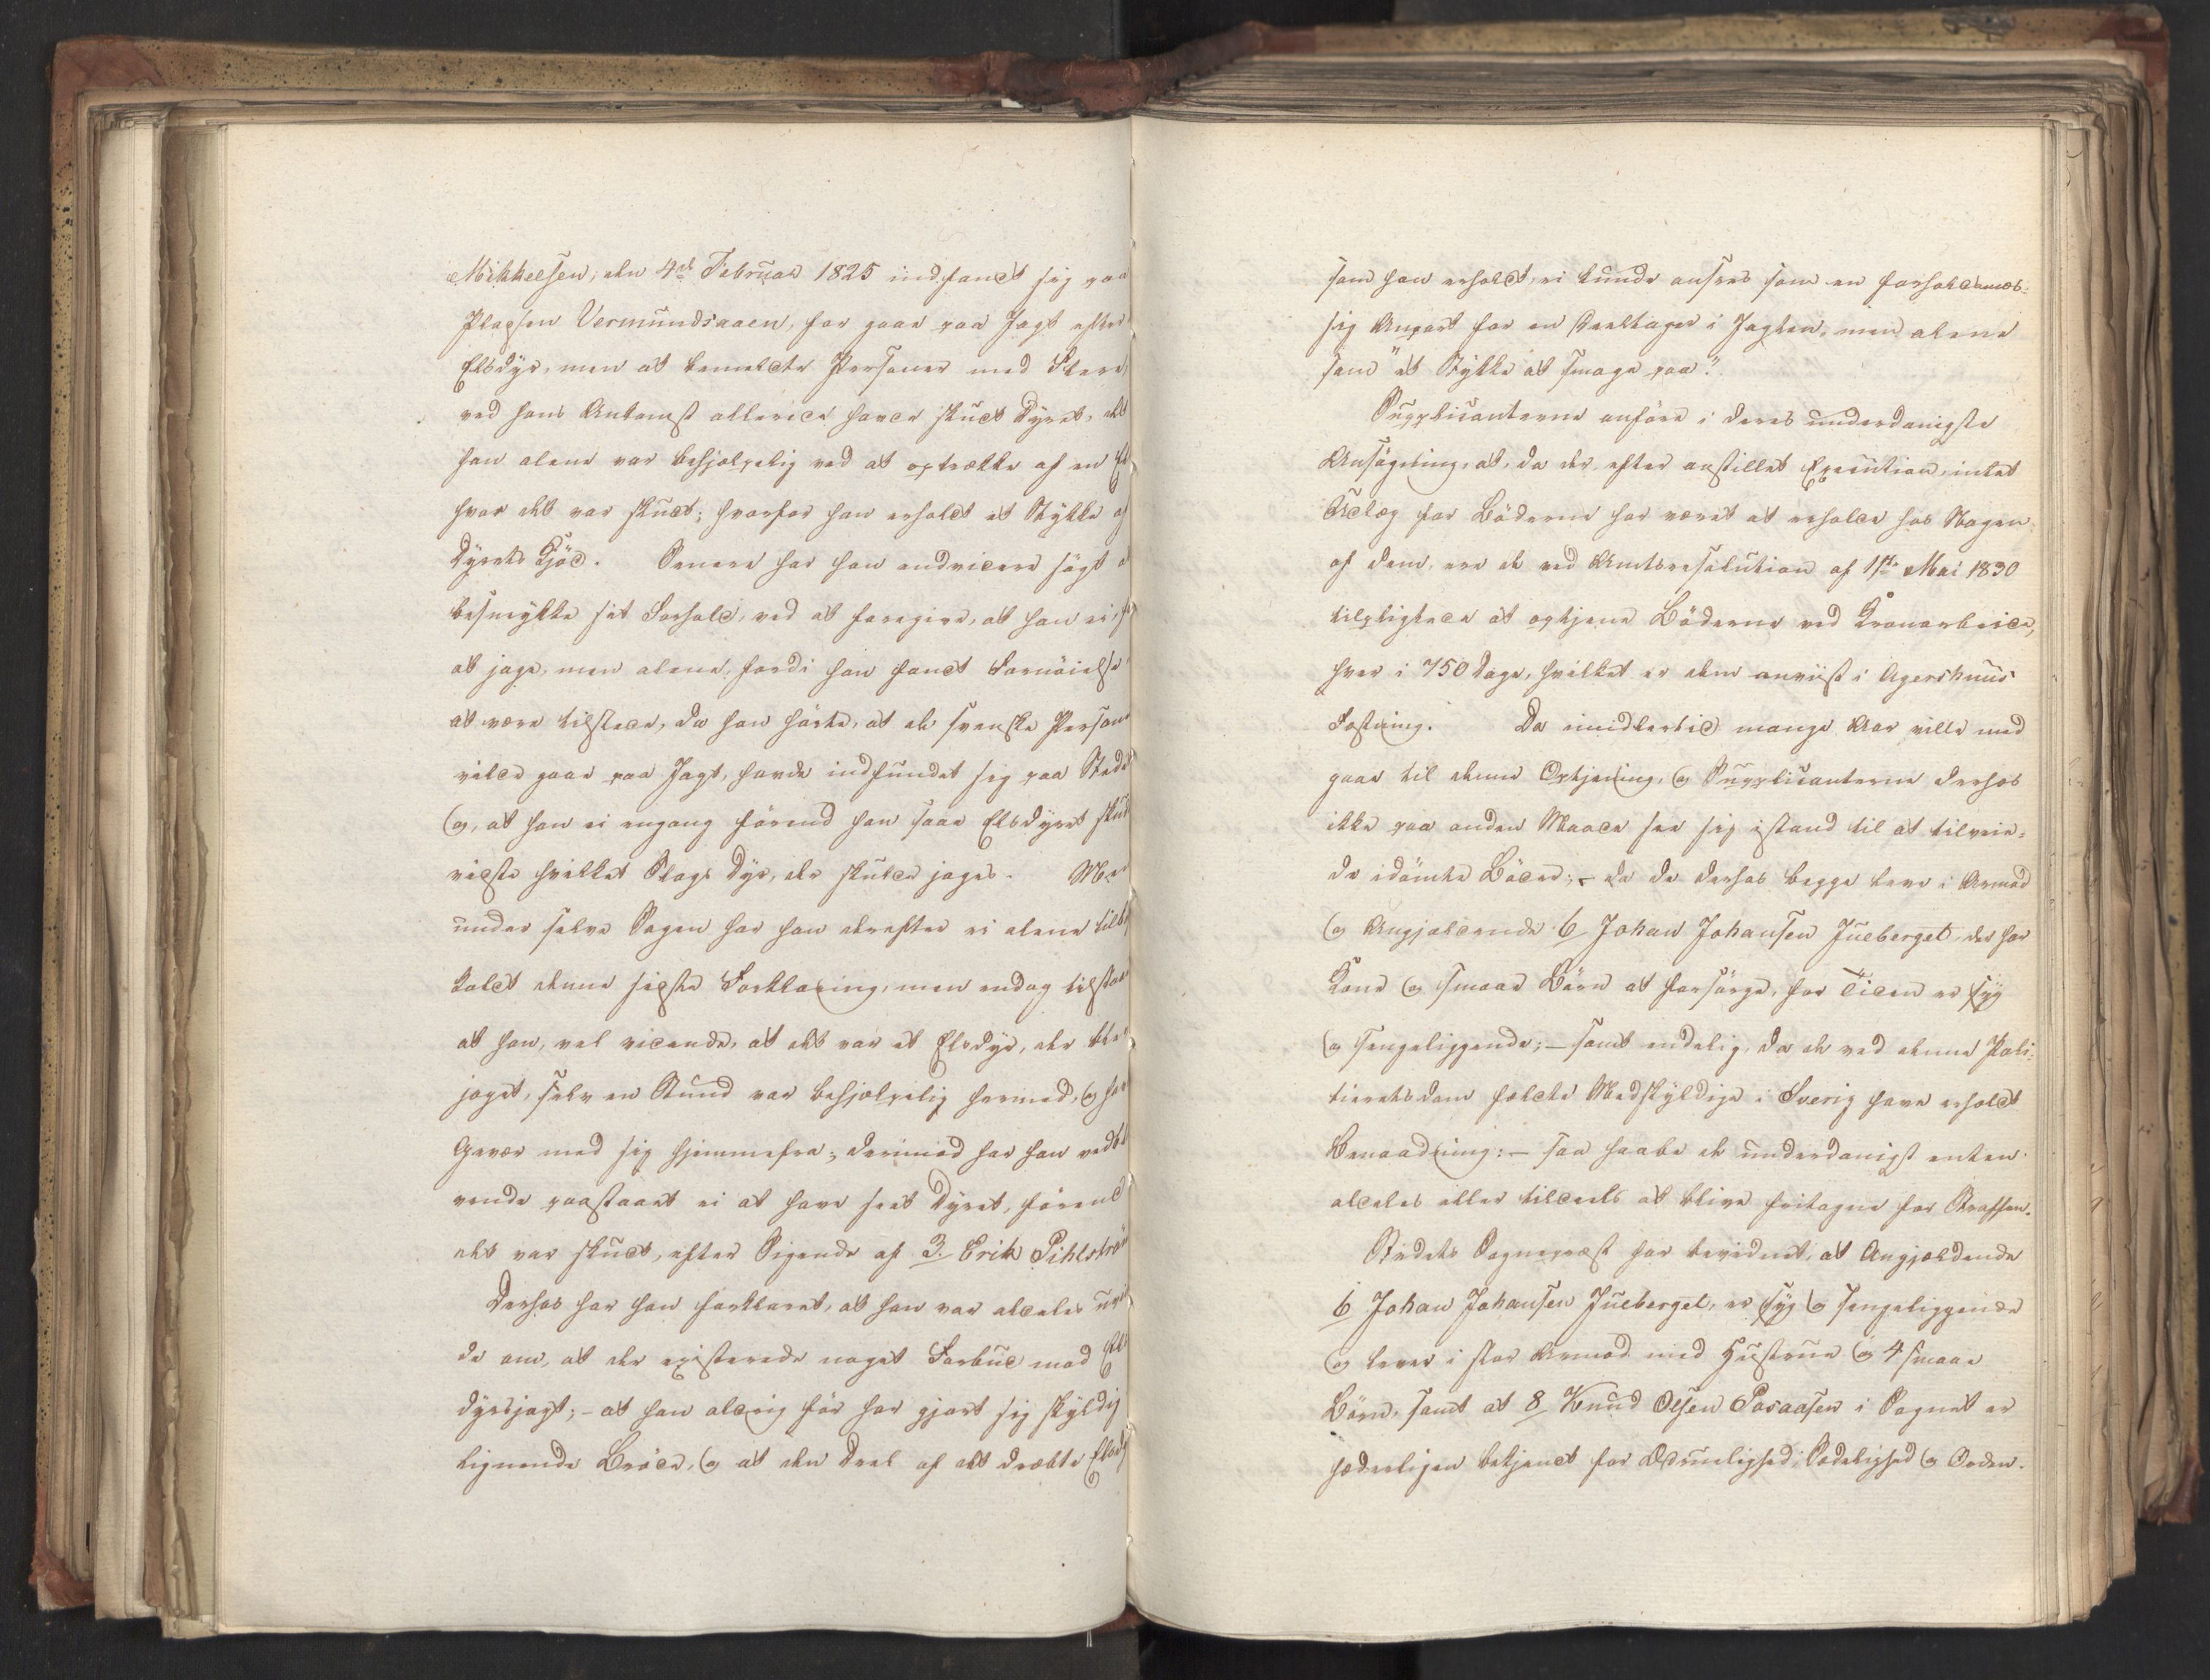 Mikkelsen, den 4de Februar 1825 indfandt sig paa
Pladsen Vermundsaaen, for gaae paa Jagt efter
Elsdyr, men at bemeldte Personer med Flere
ved hans Ankomst allerede havde skudt Dyret, at
han alene var behjelpelig ved at optrække af en
hvor det var skudt; hvorfor han erholdt et Stykke af
Dyrets Kjöd. Senere har han endvidere sögt at
besmykke sit Forhold, ved at foregive, at han ei
at jage, men alene, fordi han fandt Fornöielse i
at være tilstede, da han hörte, at de svenske Personer
vilde gaae paa Jagt, havde indfundet sig paa Stedet
og, at han ei engang förend han saae Elsdyret skudt
vidste hvilket Slags Dyr, der skulde jages. Men
under selve Sagen har han derefter ei alene tilbage
kaldt denne sidste Forklaring, men endog tilstaaet
at han, vel vidende, at det var et Elsdyr, der blev
jaget, selv en Stund var behjelpelig hermed, og havde
Gevær med sig hjemmefra; derimod har han vedbli
vende paastaaet ei at have seet Dyret, förend
det var skudt, efter Sigende af 3. Erik Pihlström
Derhos har han forklaret, at han var aldeles uvi
de om, at der existerede noget Forbud mod Els
dyrsjagt; - at han aldrig för har gjort sig skyldig i
lignende Bröde, og at den Deel af det dræbte Elsdyr
som han erholdt, ei kunde ansees som en forholdsmæs-
sig Anpart for en Deeltager i Jagten, men alene
som "et Stykke at smage paa".
Supplicanterne anföre i deres underdanigste
Ansögning, at, da der efter anstillet Execution, intet
Udlæg for Böderne har været at erholde hos Nogen
af dem, ere de ved Amtsresolution af 1ste Mai 1830
tilpligtede at optjene Böderne ved Kronarbeide,
hver i 750 Dage, hvilket er dem anviist i Agershuus
Fæstning. Da imidlertid mange Aar ville med
gaae til denne Optjening, og Supplicanterne derhos
ikke paa anden Maade see sig istand til at tilveie-
de idömte Böder; - da de derhos begge leve i Armod
og Angjældende 6 Johan Johansen Jueberget, der har
Kone og smaae Börn at forsörge, for Tiden er syg
og sengeliggende; - samt endelig, da de ved denne Poli-
tieretsdom fældte Medskyldige i Sverig have erholdt
Benaadning: - saa haabe de underdanigst enten
aldeles eller tildeels at blive fritagne for Straffen.
Stedets Sognepræst har bevidnet, at Angjældende
6 Johan Johansen Jueberget, er syg og sengeliggende
og lever i stor Armod med Hustrue og 4 smaae
Börn, samt at 8 Knud Olsen Posaasen i Sognet er
hæderligen bekjendt for Ædruelighed, Sædelighed og Orden.